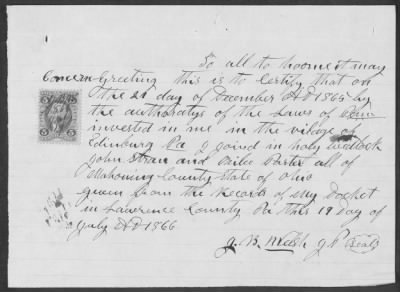 To all to hoome it may
Concern Greeting this is to Certify that on
the 21 day of December AD 1865 by
the authoratys of the Laws of Penn
invested in me in the village of
Edinburg Pa I joind in holy wedlock
John and all of
Mahoning County State of Ohio
given from the Record of my Docket
in Lawrence County Pa this 19 day of
July AD 1866
J. B. J P Seal
5 5